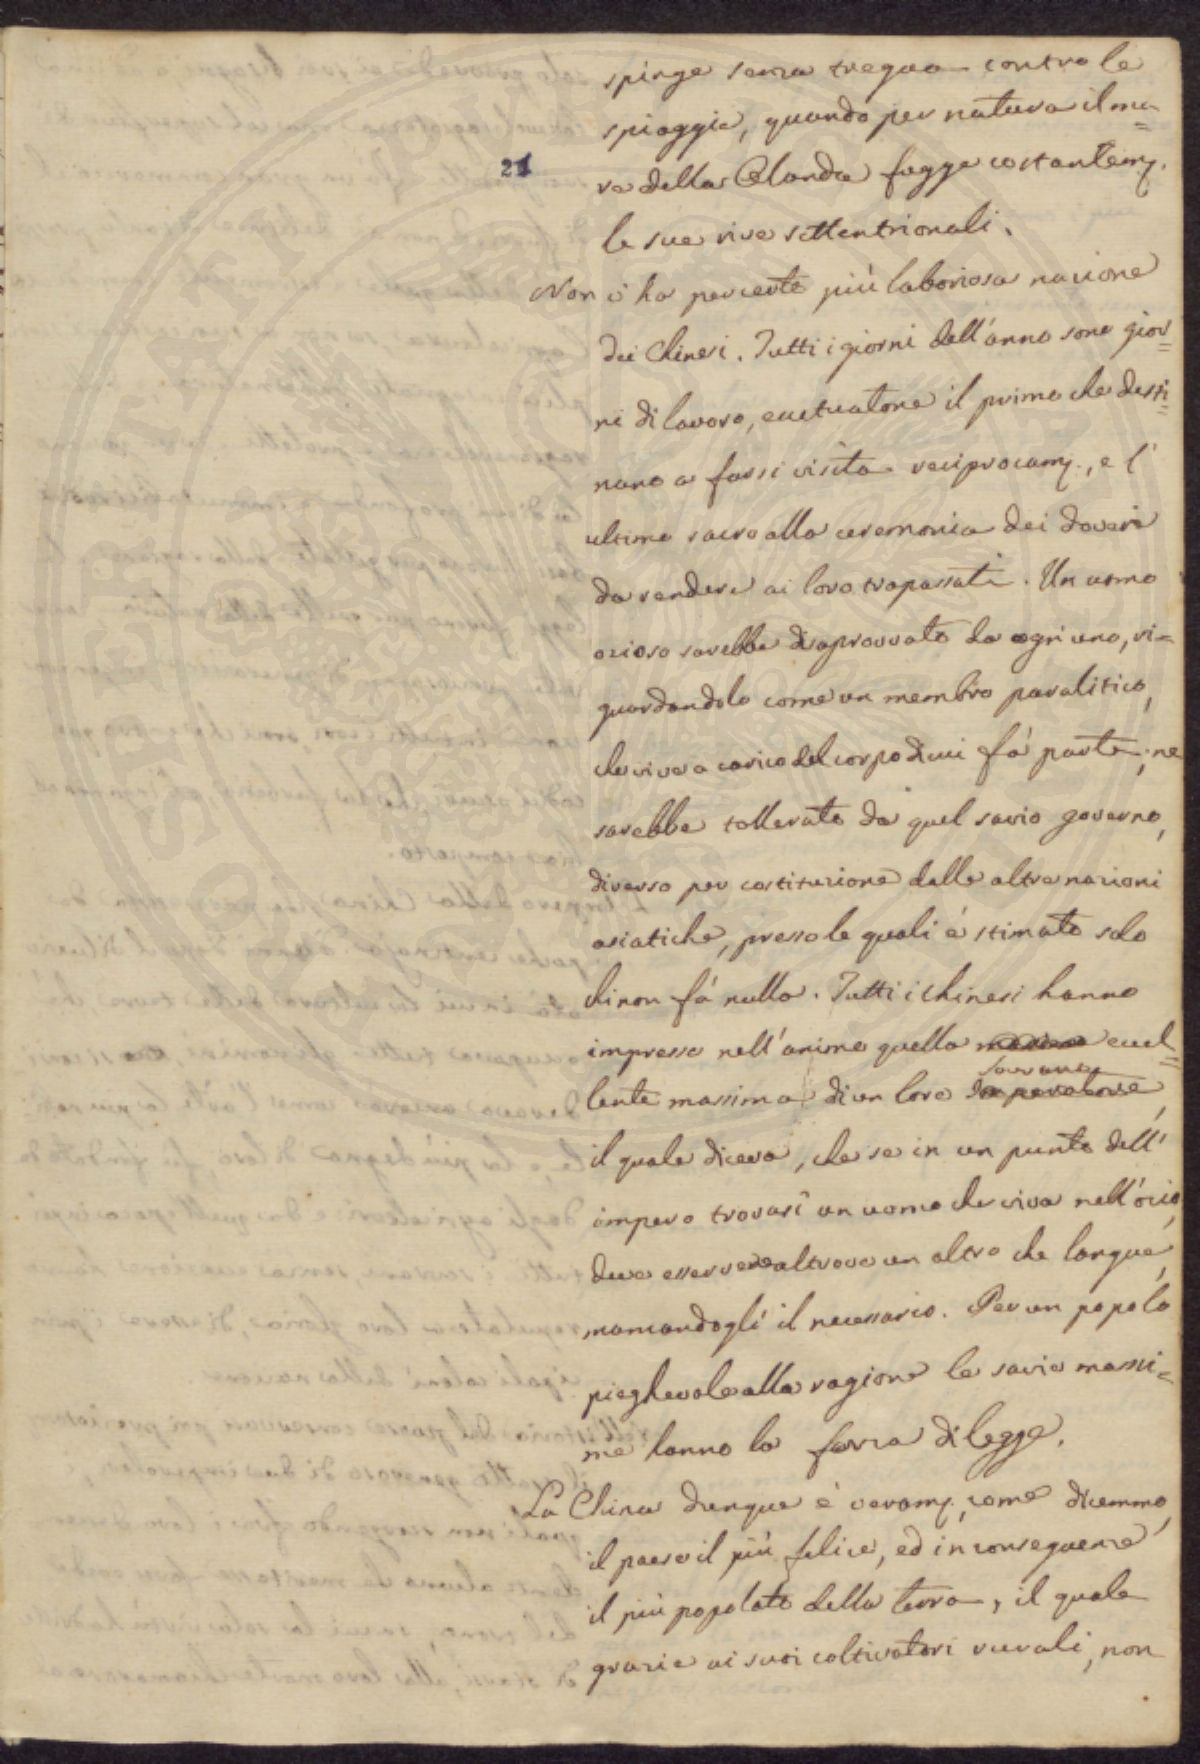 spinge senza tregua contro le
spiaggie, quando per natura il ma=
21
re della Olanda fugge costantem.
le sue rive settentrionali.
Non v'ha percerto più laboriosa nazione
dei Chinesi. Tutti i giorni dell'anno sono gior=
ni di lavoro, eccetuatone il primo che desti=
nano a farsi visita reciprocam., e l'
ultimo sacro alla ceremonia dei doveri
da rendere ai loro trapassati. Un uomo
ozioso sarebbe disaprovvato da ogni uno, ri=
guardandolo come un membro paralitico,
che vive a carico del corpo di cui fà parte; ne
sarebbe tollerato da quel savio governo,
diverso per costituzione dalle altre nazioni
asiatiche, presso le quali è stimato solo
chi non fà nulla. Tutti i Chinesi hanno
impresso nell'animo quella massima eccel=
sovrano
lente massima di un loro Imperatore,
il quale diceva, che se in un punto dell'
impero trovasi un uomo che viva nell'ozio,
deve esservene altrove un altro che langue,
mancandogli il necessario. Per un popolo
pieghevole alla ragione le savie massi=
me hanno la forza di legge.
La China dunque è veram. come dicemmo,
il paese il più felice, ed in conseguenza
il più popolato della terra, il quale
grazie ai suoi coltivatori rurali, non